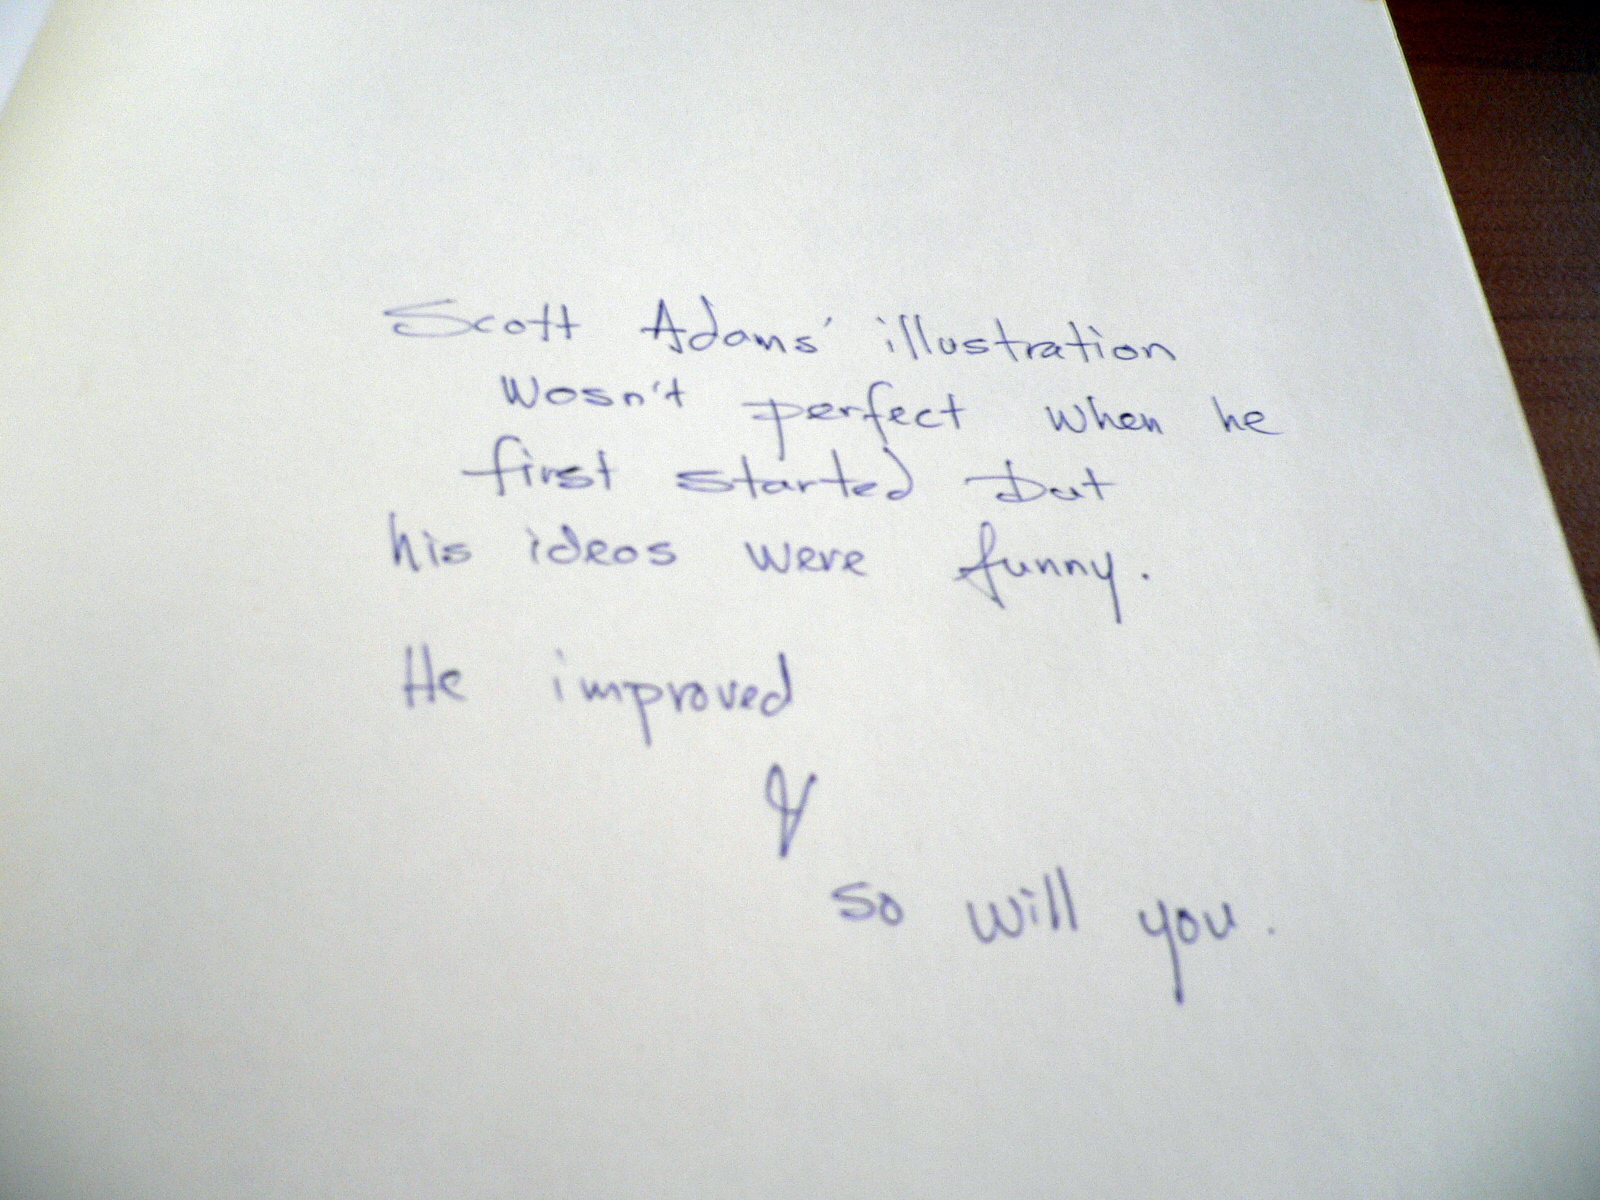 Scott Adams' illustration
wasn't perfect when he
first started but
his ideas were funny.
He improved
&
so will you.